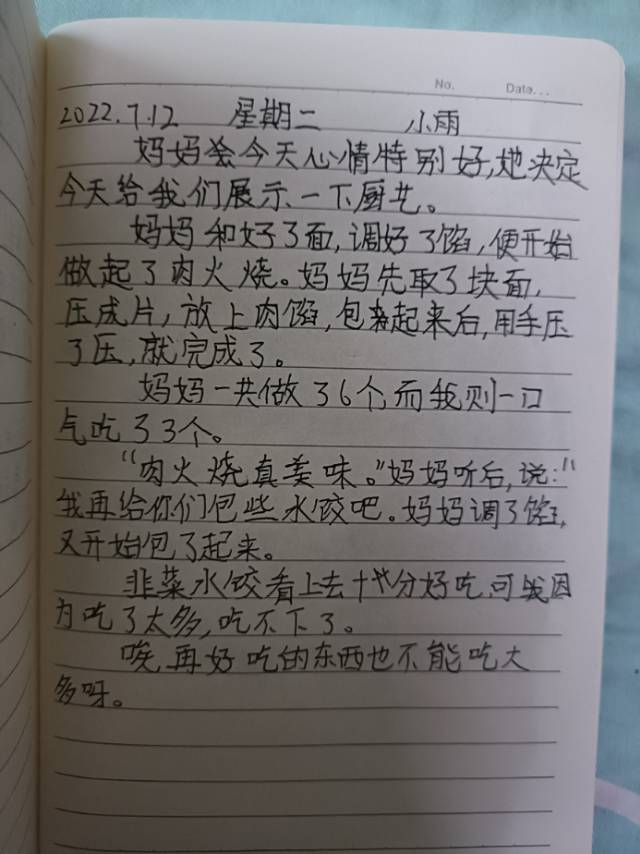 No. Date...
2022.7.12 星期二 小雨
妈妈今天心情特别好,她决定
今天给我们展示一下厨艺。
妈妈和好了面,调好了馅,便开始
做起了肉火烧。妈妈先取了块面,
压成片,放上肉馅,包起来后,用手压
了压,就完成了。
妈妈一共做了6个,而我则一口
气吃了3个。
“肉火烧真美味。”妈妈听后,说:“
我再给你们包些水饺吧。妈妈调了馅,
又开始包了起来。
韭菜水饺看上去十分好吃,可我因
为吃了太多,吃不下了。
唉,再好吃的东西也不能吃太
多呀。